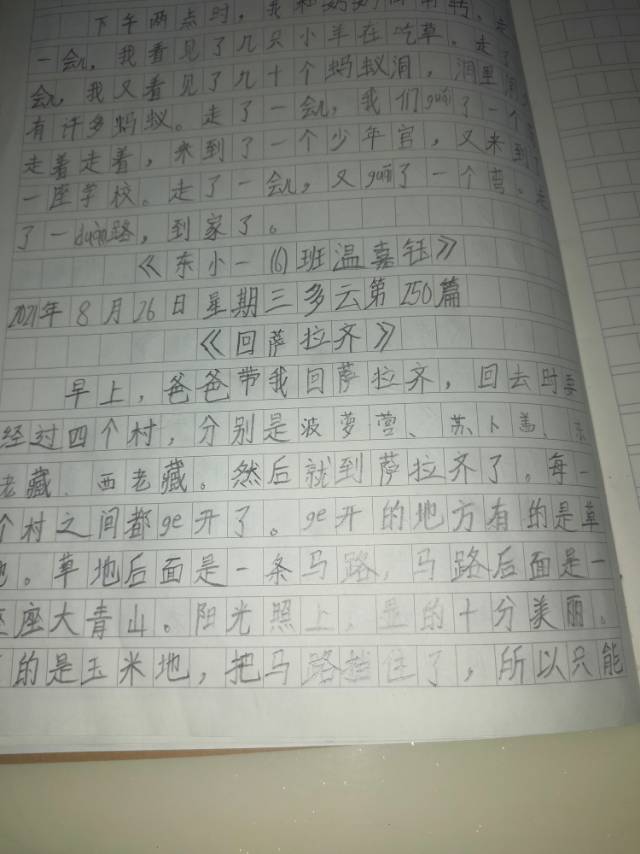 下午两点时，我和奶奶
一会儿，我看见了几只小羊在吃草。走了
会儿，我又看见了几十个蚂蚁洞，洞里
有许多蚂蚁。走了一会儿，我们guǎi了一个
走着走着，来到了一个少年宫，又来到了
一座学校。走了一会儿，又guǎi了一个弯。走
了一duàn路，到家了。
《东小一(6)班温嘉钰》
2021年8月26日星期三多云第250篇
《回萨拉齐》
早上，爸爸带我回萨拉齐，回去时要
经过四个村，分别是波萝营、苏卜盖、东
老藏、西老藏。然后就到萨拉齐了。每一
个村之间都ge开了。ge开的地方有的是草
地。草地后面是一条马路，马路后面是一
座座大青山。阳光照上，显的十分美丽。
的是玉米地，把马路挡住了，所以只能